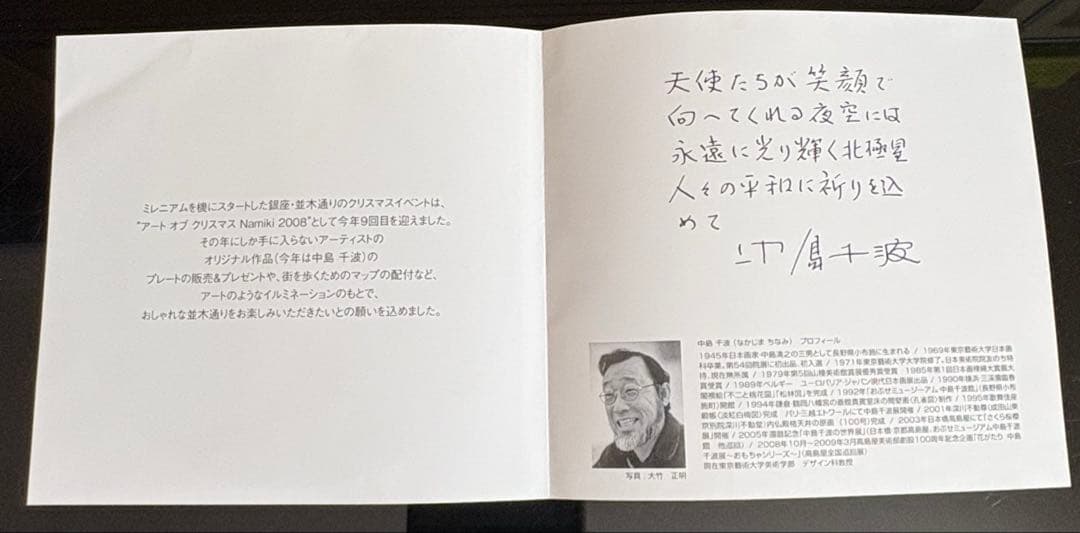 ミレニアムを機にスタートした銀座・並木通りのクリスマスイベントは、
"アート オブ クリスマス Namiki 2008"として今年9回目を迎えました。
その年にしか手に入らないアーティストの
オリジナル作品(今年は中島 千波)の
プレートの販売&プレゼントや、街を歩くためのマップの配付など、
アートのようなイルミネーションのもとで、
おしゃれな並木通りをお楽しみいただきたいとの願いを込めました。
天使たちが笑顔で
向へてくれる夜空には
永遠に光り輝く北極星
人々の平和に祈りを込
めて
中島千波
中島 千波(なかじま ちなみ) プロフィール
1945年日本画家・中島清之の三男として長野県小布施に生まれる / 1969年東京藝術大学日本画
科卒業。第54回院展に初出品、初入選 / 1971年東京藝術大学大学院修了。日本美術院院友のち特
待、現在無所属 / 1979年第5回山種美術館賞展優秀賞受賞 1985年第1回日本画裸婦大賞展大
賞受賞 / 1989年ベルギー ユーロパリア・ジャパン現代日本画展出品 / 1990年横浜・三渓園臨春
閣襖絵「不二と桃花図」「松林図」を完成 / 1992年「おぶせミュージアム・中島千波館」(長野県小布
施町)開館 / 1994年鎌倉・鶴岡八幡宮の斎館貴賓室床の間壁画(孔雀図)制作 / 1995年歌舞伎座
緞帳(淡紅白梅図)完成 パリ・三越エトワールにて中島千波展開催 / 2001年深川不動尊(成田山東
京別院深川不動堂)内仏殿格天井の原画 (100号)完成 / 2003年日本橋高島屋にて「さくら桜櫻
展」開催 / 2005年還暦記念「中島千波の世界展」(日本橋・京都高島屋、おぶせミュージアム中島千波
館 他巡回) / 2008年10月〜2009年3月高島屋美術部創設100周年記念企画「花がたり 中島
千波展〜おもちゃシリーズ〜」(高島屋全国巡回展)
現在東京藝術大学美術学部 デザイン科教授
写真:大竹 正明